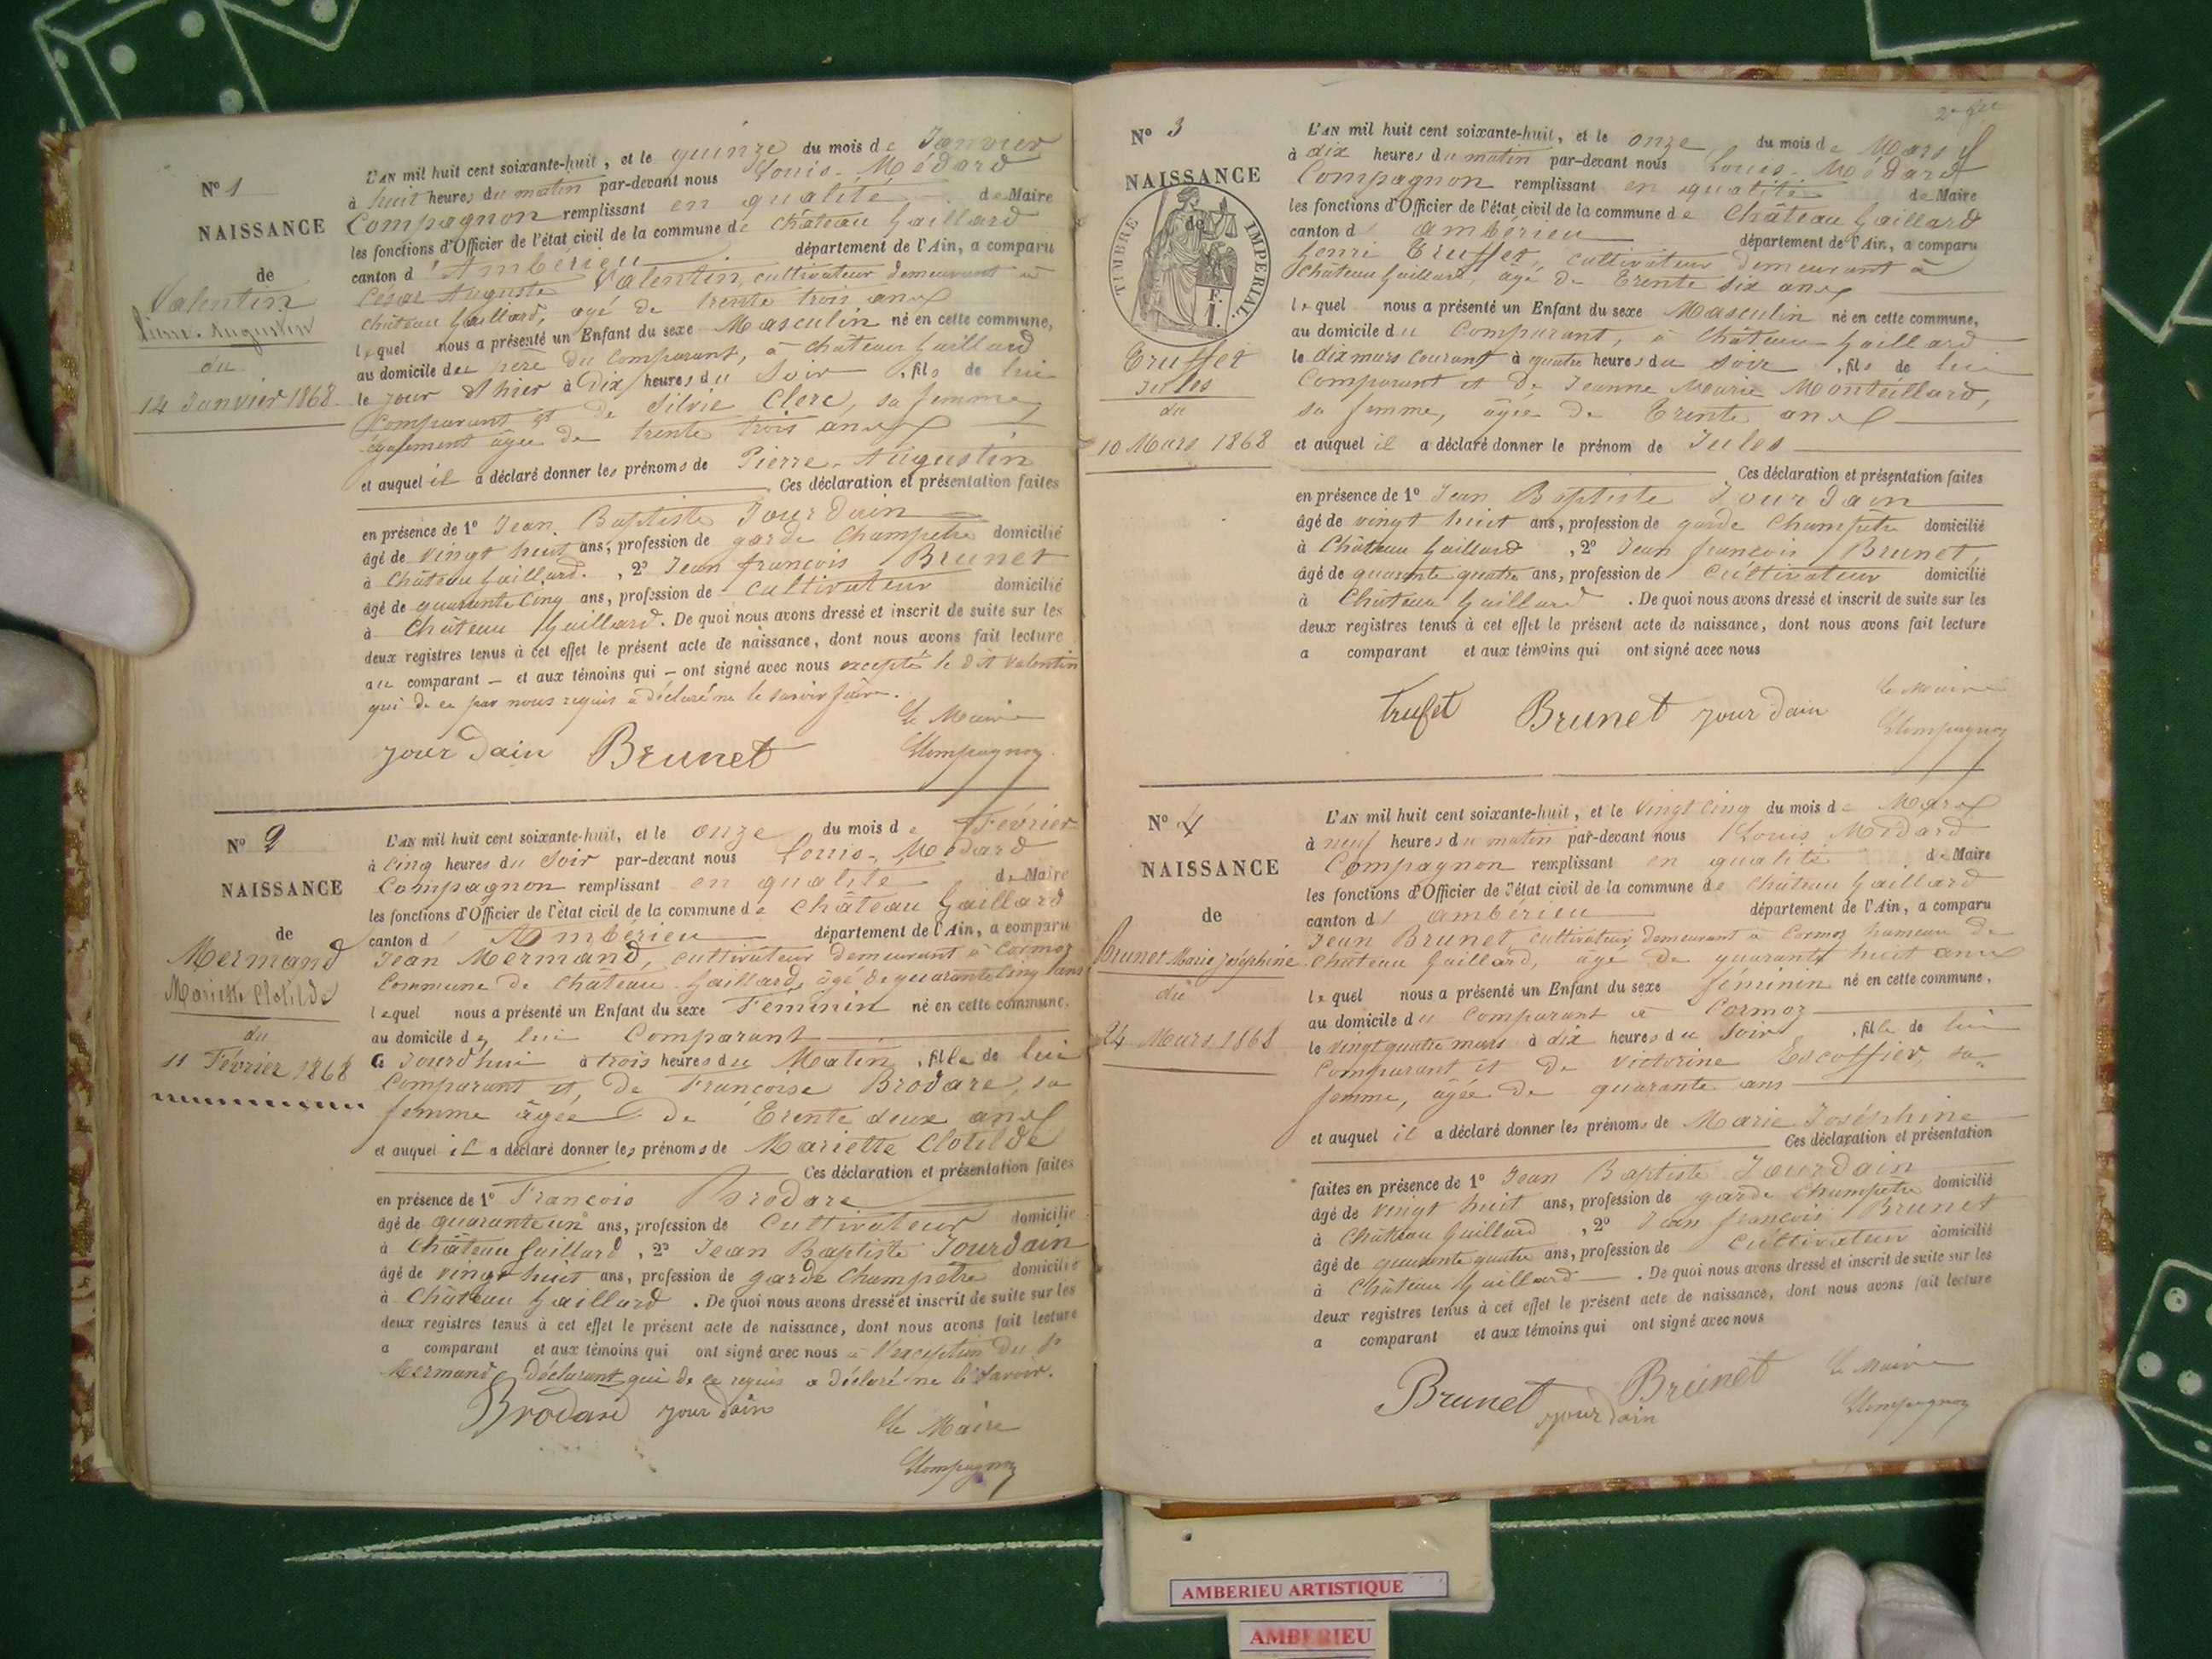 N° 1
NAISSANCE
de
Valentin
Pierre-Augustin
du
14 Janvier 1868
L'AN mil huit cent soixante-huit, et le quinze du mois de Janvier
à huit heures du matin par-devant nous Louis-Médard
Compagnon remplissant en qualité de Maire
les fonctions d'Officier de l'état civil de la commune de Château Gaillard
canton d'Ambérieu département de l'Ain, a comparu
César Auguste Valentin, cultivateur demeurant à
Château Gaillard, agé de trente trois ans
lequel nous a présenté un Enfant du sexe Masculin né en cette commune,
au domicile du père du Comparant, à Château Gaillard
le jour d'hier à Dix heures du Soir, fils de lui
Comparant et de Silvie Clerc, sa femme
également âgée de trente trois ans
et auquel il a déclaré donner les prénoms de Pierre-Augustin
Ces déclaration et présentation faites
en présence de 1° Jean Baptiste Jourdain
âgé de vingt huit ans, profession de garde Champetre domicilié
à Château Gaillard., 2° Jean françois Brunet
âgé de quarante Cinq ans, profession de Cultivateur domicilié
à Château Gaillard. De quoi nous avons dressé et inscrit de suite sur les
deux registres tenus à cet effet le présent acte de naissance, dont nous avons fait lecture
au comparant — et aux témoins qui — ont signé avec nous excepté le dit Valentin
qui de ce par nous requis a déclaré ne le savoir faire.
Le Maire
jourdain Brunet LCompagnon
N° 2
NAISSANCE
de
Mermand
Mariette Clotilde
du
11 Février 1868
L'AN mil huit cent soixante-huit, et le onze du mois de Février
à Cinq heures du Soir par-devant nous Louis-Médard
Compagnon remplissant en qualité de Maire
les fonctions d'Officier de l'état civil de la commune de Château Gaillard
canton d'Ambérieu département de l'Ain, a comparu
Jean Mermand, cultivateur demeurant à Cormoz
Commune de Château Gaillard, âgé de quarante Cinq ans
lequel nous a présenté un Enfant du sexe Féminin né en cette commune,
au domicile de lui Comparant
Ce Jourd'hui à trois heures du Matin, fille de lui
Comparant et, de Francoise Brodare, sa
femme âgée de Trente deux ans
et auquel il a déclaré donner les prénoms de Mariette Clotilde
Ces déclaration et présentation faites
en présence de 1° Francois Brodare
âgé de quarante un ans, profession de Cultivateur domicilié
à Château Gaillard, 2° Jean Baptiste Jourdain
âgé de vingt huit ans, profession de garde Champetre domicilié
à Château Gaillard. De quoi nous avons dressé et inscrit de suite sur les
deux registres tenus à cet effet le présent acte de naissance, dont nous avons fait lecture
a comparant et aux témoins qui ont signé avec nous à l'exception du dt
Mermand déclarant qui de ce requis a déclaré ne le savoir.
Brodard jourdain
Le Maire
LCompagnon
2e
N° 3
NAISSANCE
de
TIMBRE IMPÉRIAL
F.
1.
Truffet
Jules
du
10 Mars 1868
L'AN mil huit cent soixante-huit, et le onze du mois de Mars
à dix heures du matin par-devant nous Louis Médard
Compagnon remplissant en qualité de Maire
les fonctions d'Officier de l'état civil de la commune de Château Gaillard
canton d'ambérieu département de l'Ain, a comparu
henri Truffet, cultivateur demeurant à
Château Gaillard, agé de Trente six ans
lequel nous a présenté un Enfant du sexe Masculin né en cette commune,
au domicile du Comparant, à Château-Gaillard
le dix mars courant à quatre heures du soir, fils de lui
Comparant et de Jeanne Marie Monteillard,
sa femme, âgée de Trente ans
et auquel il a déclaré donner le prénom de Jules
Ces déclaration et présentation faites
en présence de 1° Jean Baptiste Jourdain
âgé de vingt huit ans, profession de garde Champetre domicilié
à Château Gaillard, 2° Jean francois Brunet
âgé de quarante quatre ans, profession de Cultivateur domicilié
à Château Gaillard. De quoi nous avons dressé et inscrit de suite sur les
deux registres tenus à cet effet le présent acte de naissance, dont nous avons fait lecture
a comparant et aux témoins qui ont signé avec nous
Le Maire
Trufet Brunet jourdain LCompagnon
N° 4
NAISSANCE
de
Brunet Marie Joséphine
du
24 Mars 1868
L'AN mil huit cent soixante-huit, et le Vingt Cinq du mois de Mars
à neuf heures du matin par-devant nous Louis Médard
Compagnon remplissant en qualité de Maire
les fonctions d'Officier de l'état civil de la commune de Château Gaillard
canton d'ambérieu département de l'Ain, a comparu
Jean Brunet cultivateur, demeurant à Cormoz hameau de
Château Gaillard, âgé de quarante huit ans
lequel nous a présenté un Enfant du sexe féminin né en cette commune,
au domicile du Comparant à Cormoz
le vingt quatre mars à dix heures du Soir, fille de lui
Comparant et de Victorine Escoffier, sa
femme, âgée de quarante ans
et auquel il a déclaré donner les prénoms de Marie Joséphine
Ces déclaration et présentation
faites en présence de 1° Jean Baptiste Jourdain
âgé de vingt huit ans, profession de garde Champetre domicilié
à Château Gaillard, 2° Jean françois Brunet
âgé de quarante quatre ans, profession de Cultivateur domicilié
à Château Gaillard. De quoi nous avons dressé et inscrit de suite sur les
deux registres tenus à cet effet le présent acte de naissance, dont nous avons fait lecture
a comparant et aux témoins qui ont signé avec nous
Brunet Brunet Le Maire
jourdain LCompagnon
AMBERIEU ARTISTIQUE
AMBERIEU